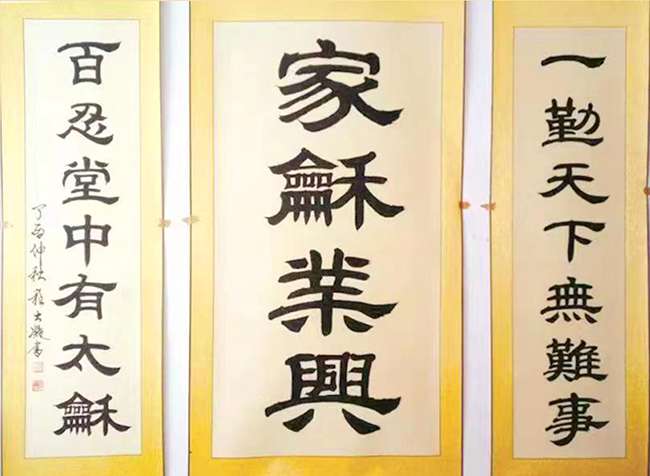 一勤天下無難事
家龢業興
百忍堂中有太龢
丁酉仲秋 書